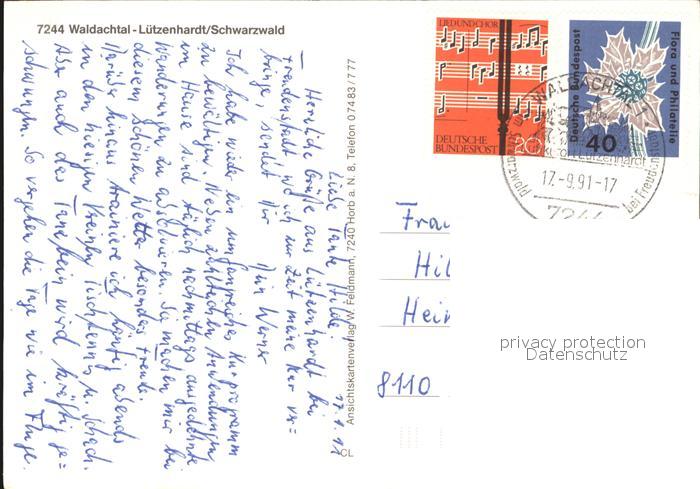 7244 Waldachtal-Lützenhardt/Schwarzwald
17.9.91
Liebe Tante Hilde!
Herzliche Grüße aus Lützenhardt bei
Freudenstadt, wo ich zur Zeit meine Kur ver=
bringe, sendet Dir
Dein Werner
Ich habe wieder ein umfangreiches Kurprogramm
zu bewältigen. Neben zahlreichen Anwendungen
im Hause sind täglich nachmittags ausgedehnte
Wanderungen zu absolvieren. Sie machen mir bei
diesem schönen Wetter besondere Freude.
Darüber hinaus trainiere ich häufig abends
in den hiesigen Vereinen Tischtennis u. Schach.
Aber auch das Tanzbein wird kräftig ge=
schwungen. So vergehen die Tage wie im Fluge.
Ansichtskartenverlag W. Feldmann, 7240 Horb a. N. 8, Telefon 07483/777
CL
LIED UND CHOR
DEUTSCHE
BUNDESPOST
20
Flora und Philatelie
Deutsche Bundespost
40
WALDACH
Lützenhardt
17.-9.91-17
Schwarzwald
bei Freuden
7244
Frau
Hil
Hein
8110
privacy protection
Datenschutz